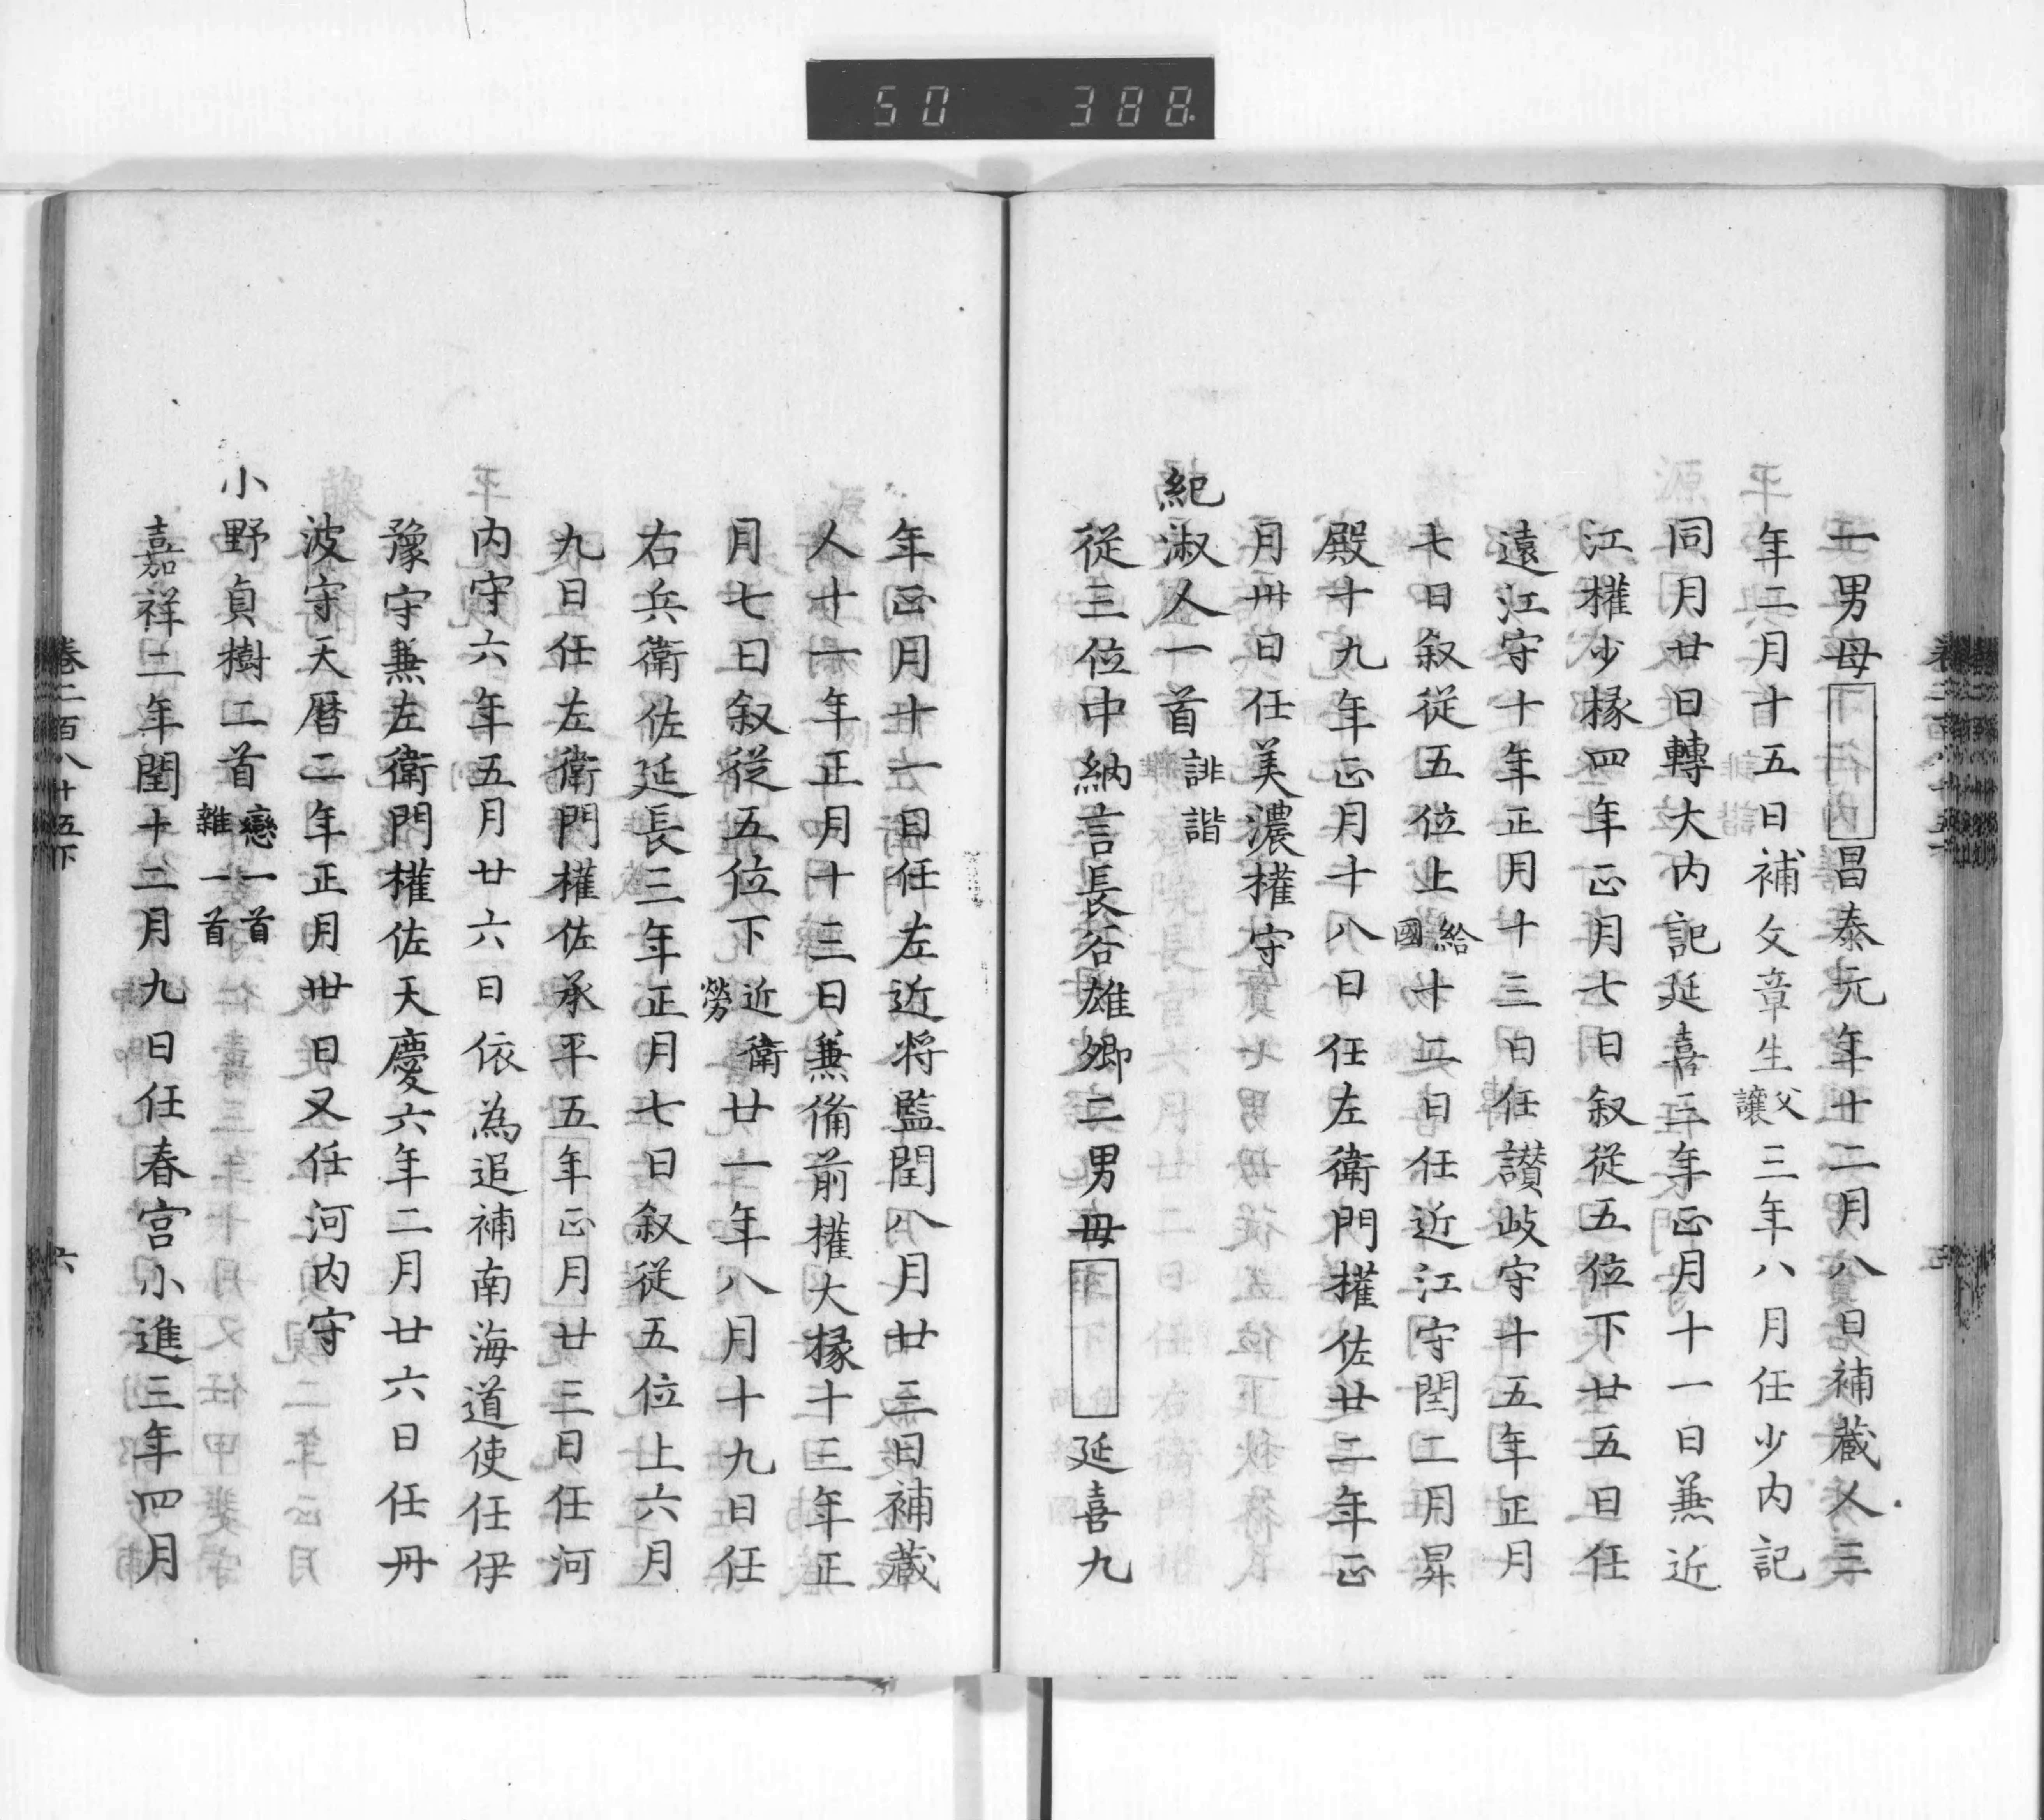 50 388
一男母昌泰元年十二月八日補蔵人三
年二月十五日補文章生父讓三年八月任少内記
同月廿日轉大内記延喜三年正月十一日兼近
江權少掾四年正月七日叙従五位下廿五日任
遠江守十年正月十三日任讃岐守十五年正月
七日叙従五位上給國十二日任近江守閏二月昇
殿十九年正月十八日任左衛門權佐廿二年正
月卅日任美濃權守
紀淑人一首誹諧
従三位中納言長谷雄卿二男母延喜九
年正月十一日任左近将監閏八月廿三日補蔵
人十一年正月十三日兼備前權大掾十三年正
月七日叙従五位下近衛勞廿一年八月十九日任
右兵衛佐延長三年正月七日叙従五位上六月
九日任左衛門權佐承平五年正月廿三日任河
内守六年五月廿六日依為追補南海道使任伊
豫守兼左衛門權佐天慶六年二月廿六日任丹
波守天暦二年正月卅日又任河内守
小野貞樹二首戀一首雜一首
嘉祥二年閏十二月九日任春宮小進三年四月
巻二百八十五下
六